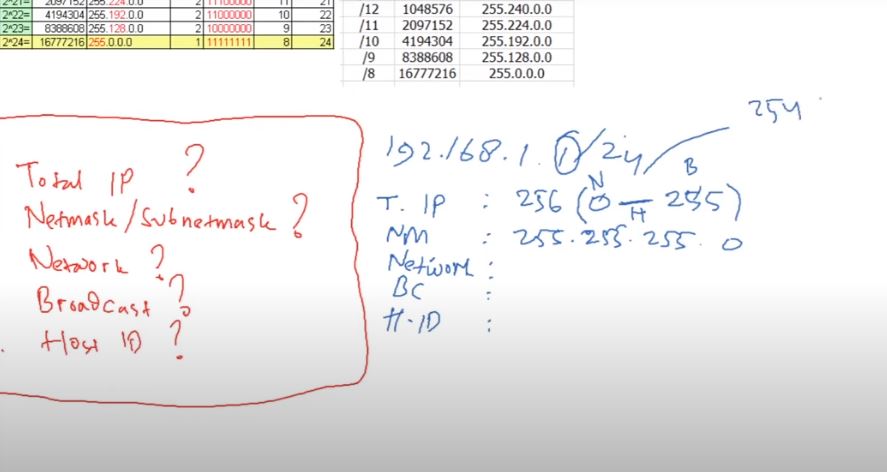 2^21= 2097152 255.224.0.0 2 11100000 11 21
2^22= 4194304 255.192.0.0 2 11000000 10 22
2^23= 8388608 255.128.0.0 2 10000000 9 23
2^24= 16777216 255.0.0.0 1 11111111 8 24
/12 1048576 255.240.0.0
/11 2097152 255.224.0.0
/10 4194304 255.192.0.0
/9 8388608 255.128.0.0
/8 16777216 255.0.0.0
Total IP ?
Netmask/Subnetmask ?
Network ?
Broadcast ?
Host ID ?
254
192.168.1.1/24
N H B
T. IP : 256 (0 – 255)
NM : 255.255.255.0
Network :
BC :
H-ID :